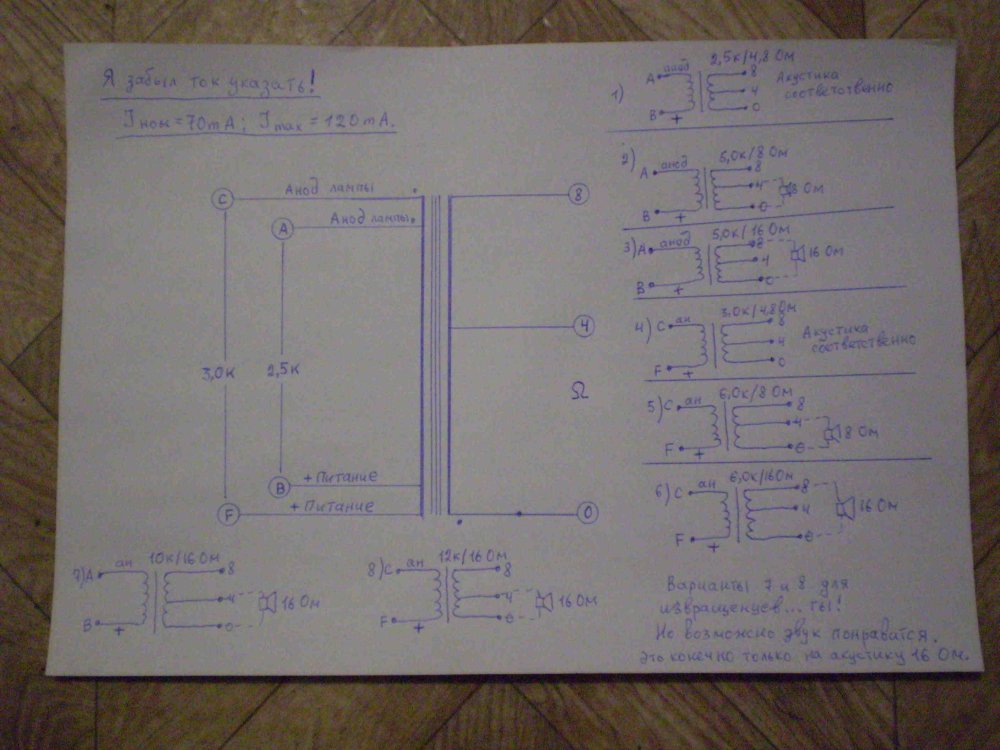 Я забыл ток указать!
Iном = 70mA; Imax = 120mA.
C
Анод лампы
A
Анод лампы
3,0к
2,5к
B
+ Питание
F
+ Питание
8
4
Ω
0
1)
2,5к/4,8 Ом
A
анод
B
+
8
4
0
Акустика
соответственно
2)
5,0к/8 Ом
A
анод
B
+
8
4
0
8 Ом
3)
5,0к/16 Ом
A
анод
B
+
8
4
0
16 Ом
4)
3,0к/4,8 Ом
C
ан
F
+
8
4
0
Акустика
соответственно
5)
6,0к/8 Ом
C
ан
F
+
8
4
0
8 Ом
6)
6,0к/16 Ом
C
ан
F
+
8
4
0
16 Ом
7)
10к/16 Ом
A
ан
B
+
8
4
0
16 Ом
8)
12к/16 Ом
C
ан
F
+
8
4
0
16 Ом
Варианты 7 и 8 для
извращенцев... гы!
Но возможно звук понравится.
Это конечно только на акустику 16 Ом.